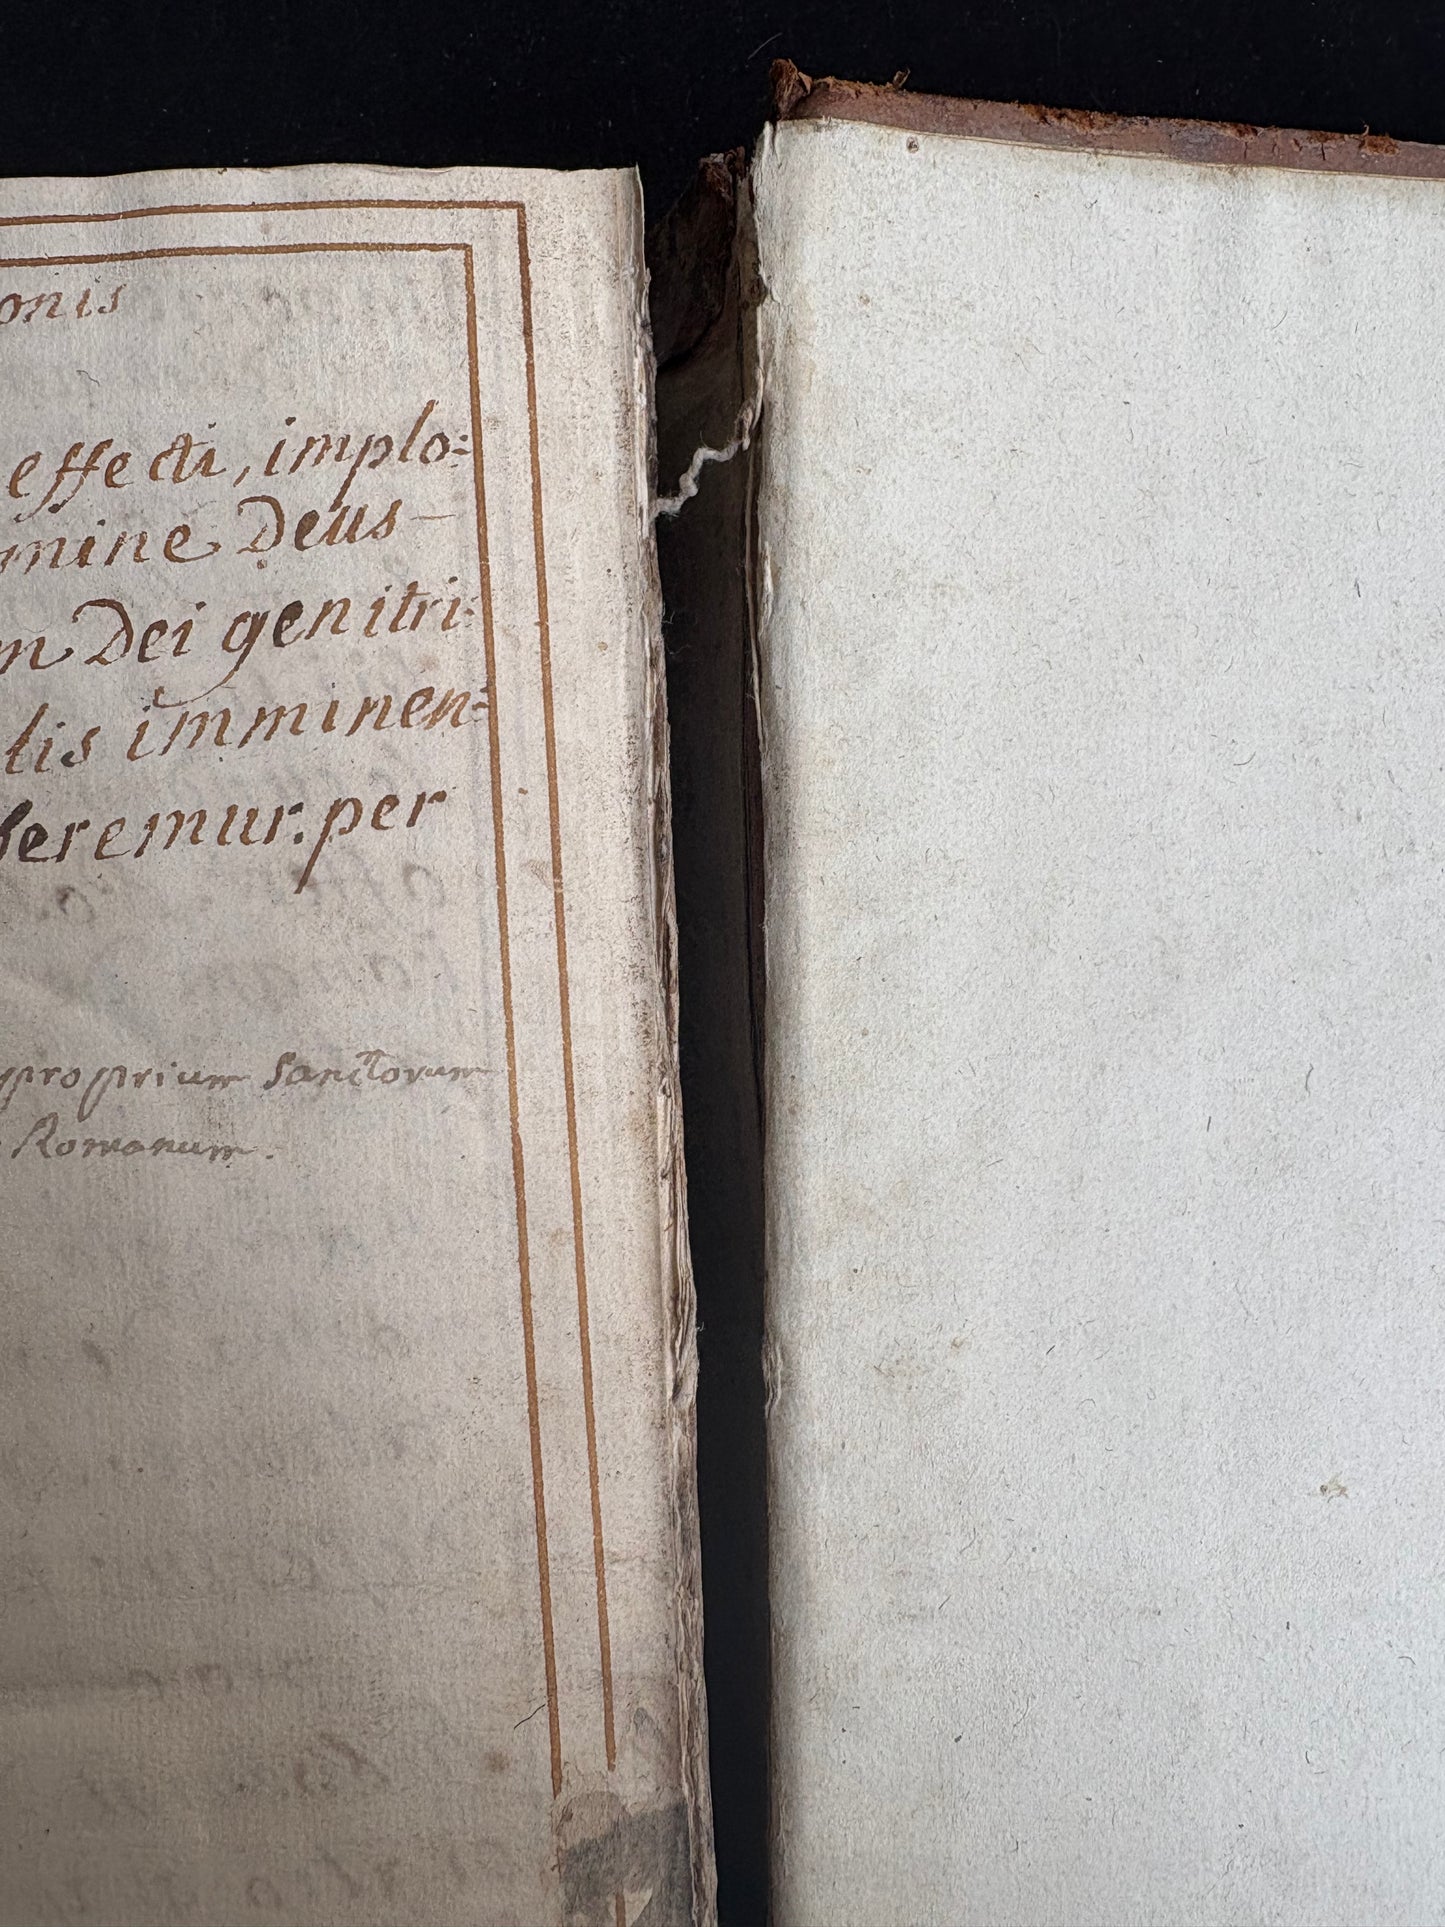 onis
effecti, implo=
mine Deus
m Dei genitri=
tis imminen=
beremur. per
proprium Sanctorum
Romanum.